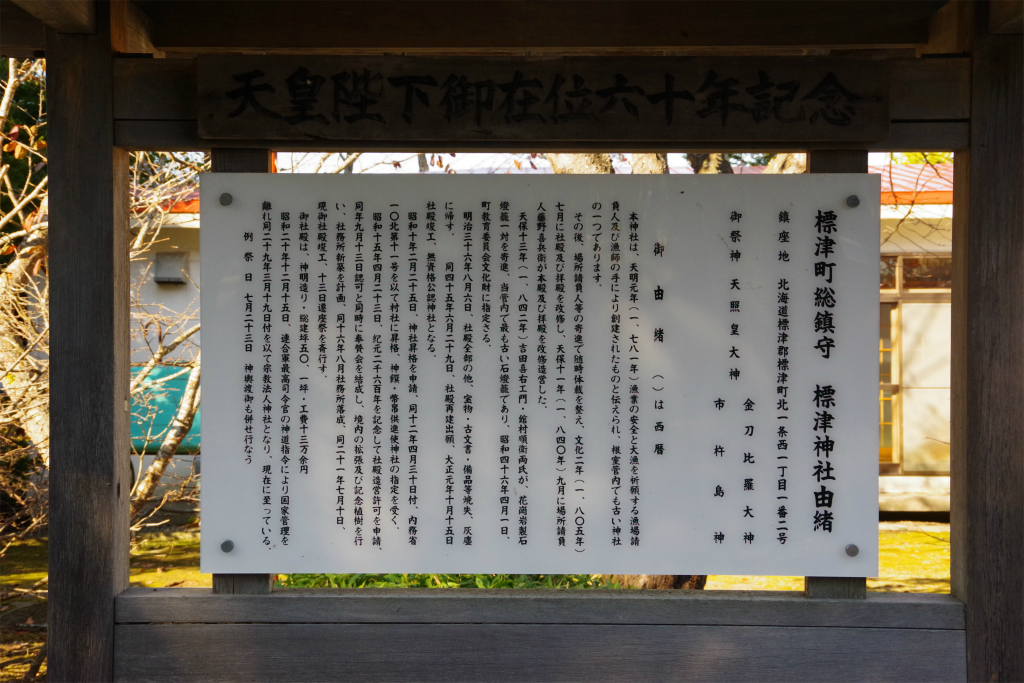 天皇陛下御在位六十年記念
標津町総鎮守　標津神社由緒
鎮座地　北海道標津郡標津町北一条西一丁目一番二号
御祭神　天照皇大神　金刀比羅大神
市杵島神
御由緒　（）は西暦
本神社は、天明元年（一、七八一年）漁業の安全と大漁を祈願する漁場請
負人及び漁師の手により創建されたものと伝えられ、根室管内でも古い神社
の一つであります。
その後、場所請負人等の寄進で随時体裁を整え、文化二年（一、八〇五年）
七月に社殿及び拝殿を改修し、天保十一年（一、八四〇年）九月に場所請負
人藤野喜兵衛が本殿及び拝殿を改修造営した。
天保十三年（一、八四二年）吉田喜右エ門・舘村順衛両氏が、花崗岩製石
燈籠一対を寄進、当管内で最も古い石燈籠であり、昭和四十六年四月一日、
町教育委員会文化財に指定さる。
明治三十六年八月六日、社殿全部の他、宝物・古文書・備品等焼失、灰塵
に帰す。　同四十五年六月二十九日、社殿再建出願、大正元年十月十五日
社殿竣工、無資格公認神社となる。
昭和十年二月二十五日、神社昇格を申請、同十二年四月三十日付、内務省
一〇北第十一号を以て村社に昇格、神饌・幣帛供進使神社の指定を受く、
昭和十五年四月二十三日、紀元二千六百年を記念して社殿造営許可を申請、
同年九月十三日認可と同時に奉賛会を結成し、境内の拡張及び記念植樹を行
い、社務所新築を計画、同十六年八月社務所落成、同二十一年七月十日、
現御社殿竣工、十三日遷座祭を斎行す。
御社殿は、神明造り・総建坪五〇一坪・工費十三万余円
昭和二十年十二月十五日、連合軍最高司令官の神道指令により国家管理を
離れ同二十九年三月十九日付を以て宗教法人神社となり、現在に至っている。
例祭日　七月二十三日　神輿渡御も併せ行なう